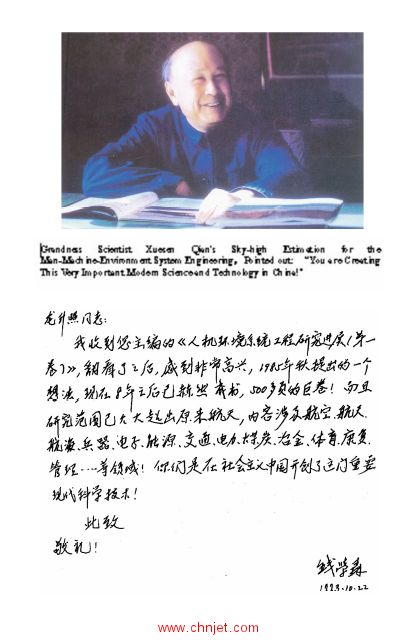 Grandness Scientist Xuesen Qian's Sky-high Estimation for the
Man-Machine-Environment System Engineering, Pointed out: "You are Creating
This Very Important Modern Science and Technology in China!"
龙升照同志:
我收到您主编的《人机环境系统工程研究进展(第一
卷)》,翻看了之后,感到非常高兴,1985年秋提出的一个
想法,现在8年之后已蔚然成书,500多页的巨卷!而且
研究范围已大大超出原来航天,内容涉及航空、航天、
航海、兵器、电子、能源、交通、电力、煤炭、冶金、体育、康复、
管理……等领域!你们是在社会主义中国开创了这门重要
现代科学技术!
此致
敬礼!
钱学森
1993.10.22
www.chnjet.com